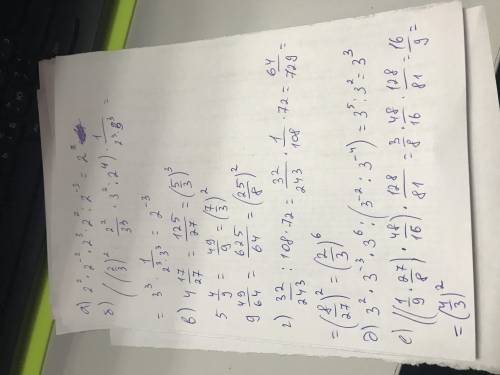 а) 2² · 2⁻² · 2³ · 2² · 2 · 2⁻³ =
б) ((2/3)² · 2²/3³ · 3² · 2⁴) · 1/(2⁵ · 3³) =
= 3³ · 1/(2³ · 3³) = 2⁻³
в) 4 17/27 = 125/27 = (5/3)³
5 4/9 = 49/9 = (7/3)²
9 49/64 = 625/64 = (25/8)²
г) 32/243 : 108 · 72 = 32/243 · 1/108 · 72 = 64/729 =
= (8/27)² = (2/3)⁶
д) 3² · 3⁻³ · 3⁶ : (3⁻² · 3⁻⁴) = 3⁵ : 3² = 3³
е) ((1/9 · 27/8) · 48/16) · 128/81 = 3/8 · 48/16 · 128/81 = 16/9
= (4/3)²